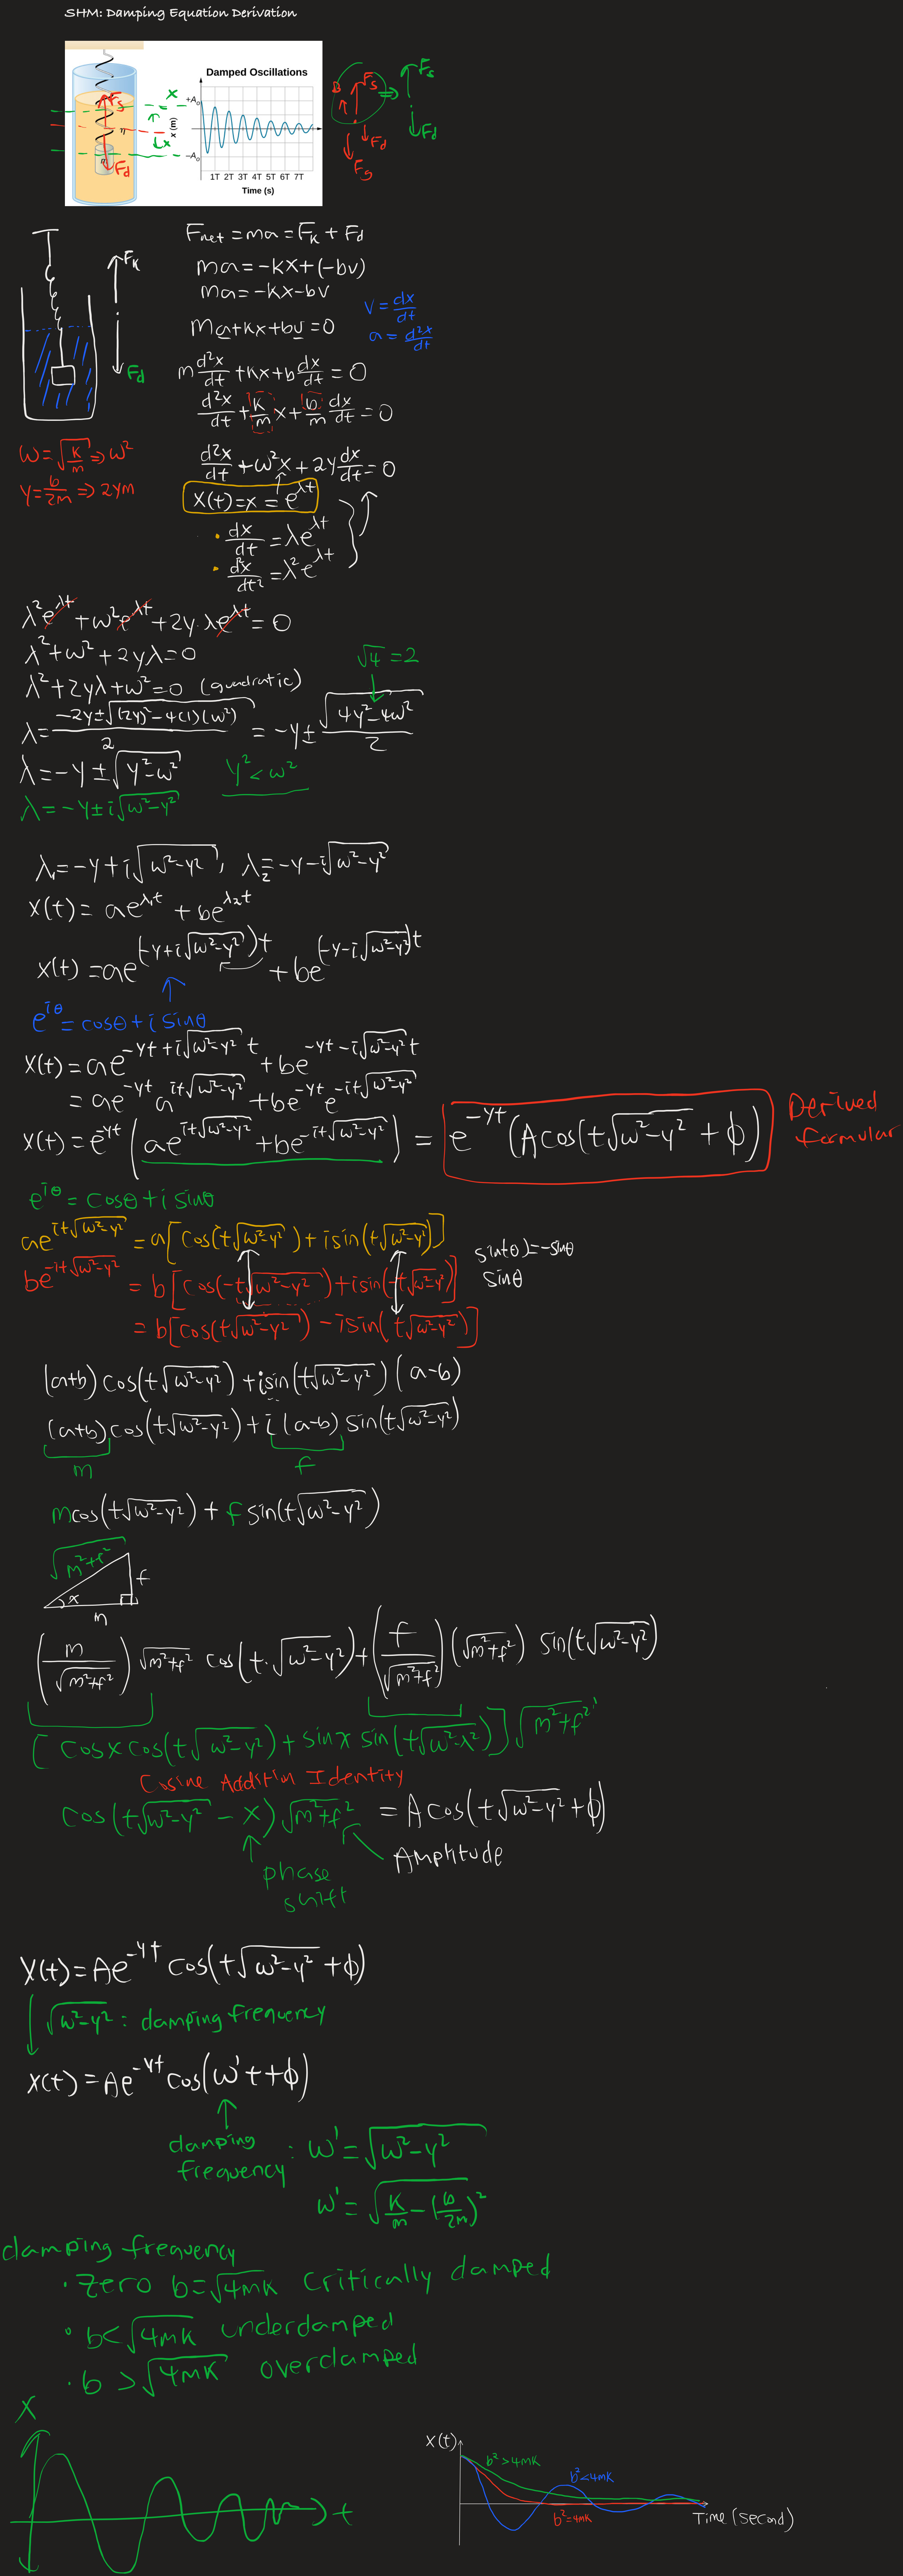 SHM: Damping Equation Derivation
Damped Oscillations
+A₀
x (m)
−A₀
1T 2T 3T 4T 5T 6T 7T
Time (s)
Fs
Fd
x
x
Fs
Fd
Fs
Fs
Fd
Fnet = ma = FK + Fd
ma = -kx + (-bv)
ma = -kx - bv
ma + kx + bv = 0
v = dx/dt
a = d²x/dt
FK
Fd
m d²x/dt + kx + b dx/dt = 0
d²x/dt + k/m x + b/m dx/dt = 0
ω = √(k/m) ⇒ ω²
γ = b/2m ⇒ 2γm
d²x/dt + ω²x + 2γ dx/dt = 0
x(t) = x = e^(λt)
• dx/dt = λe^(λt)
• d²x/dt² = λ²e^(λt)
λ²e^(λt) + ω²e^(λt) + 2γ·λe^(λt) = 0
λ² + ω² + 2γλ = 0
√4 = 2
λ² + 2γλ + ω² = 0 (quadratic)
λ = (-2γ ± √((2γ)² - 4(1)(ω²)))/2 = -γ ± √(4γ² - 4ω²)/2
λ = -γ ± √(γ² - ω²)
γ² < ω²
λ = -γ ± i√(ω² - γ²)
λ₁ = -γ + i√(ω² - γ²), λ₂ = -γ - i√(ω² - γ²)
x(t) = ae^(λ₁t) + be^(λ₂t)
x(t) = ae^((-γ + i√(ω² - γ²))t) + be^((-γ - i√(ω² - γ²))t)
e^(iθ) = cosθ + i sinθ
x(t) = ae^(-γt + i√(ω² - γ²)t) + be^(-γt - i√(ω² - γ²)t)
= ae^(-γt) a^(it√(ω² - γ²)) + be^(-γt) e^(-it√(ω² - γ²))
x(t) = e^(-γt) (ae^(it√(ω² - γ²)) + be^(-it√(ω² - γ²))) = e^(-γt) (A cos(t√(ω² - γ²) + ϕ)
Derived formular
e^(iθ) = cosθ + i sinθ
ae^(it√(ω² - γ²)) = a[cos(t√(ω² - γ²)) + isin(t√(ω² - γ²))]
sin(-θ) = -sinθ
sinθ
be^(-it√(ω² - γ²)) = b[cos(-t√(ω² - γ²)) + isin(-t√(ω² - γ²)]
= b[cos(t√(ω² - γ²)) - isin(t√(ω² - γ²))]
(a+b) cos(t√(ω² - γ²)) + isin(t√(ω² - γ²)) (a-b)
(a+b) cos(t√(ω² - γ²)) + i(a-b) sin(t√(ω² - γ²))
m
f
m cos(t√(ω² - γ²)) + f sin(t√(ω² - γ²))
√(m² + f²)
f
x
m
(m/√(m² + f²)) √(m² + f²) cos(t·√(ω² - γ²)) + (f/√(m² + f²)) (√(m² + f²)) sin(t√(ω² - γ²))
[cosx cos(t√(ω² - γ²)) + sinx sin(t√(ω² - λ²))] √(m² + f²)
Cosine Addition Identity
cos(t√(ω² - γ²) - x) √(m² + f²) = A cos(t√(ω² - γ²) + ϕ)
Amplitude
phase shift
x(t) = Ae^(-γt) cos(t√(ω² - γ²) + ϕ)
√(ω² - γ²) : damping frequency
x(t) = Ae^(-γt) cos(ω't + ϕ)
damping frequency : ω' = √(ω² - γ²)
ω' = √(k/m - (b/2m)²)
damping frequency
• Zero b = √4mk critically damped
• b < √4mk underdamped
• b > √4mk overdamped
x
t
x(t)
b² > 4mk
b² < 4mk
b² = 4mk
Time (second)